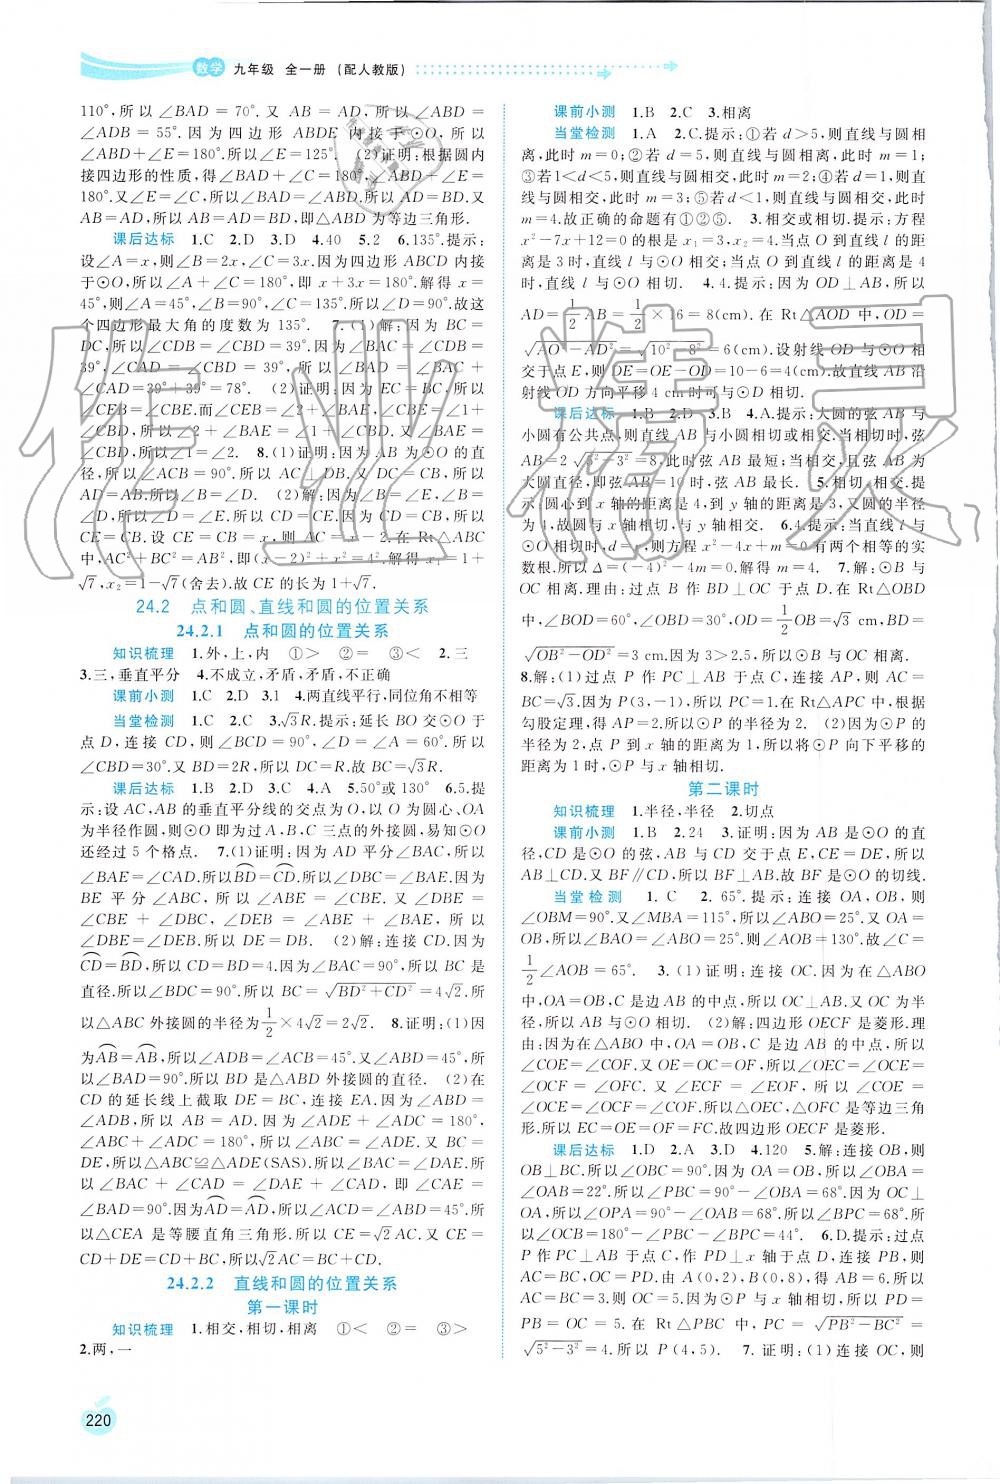 数学 九年级 全一册 (配人教版)
110°,所以∠BAD=70°.又AB=AD,所以∠ABD=
∠ADB=55°.因为四边形ABDE内接于⊙O,所以
∠ABD+∠E=180°.所以∠E=125°. (2)证明:根据圆内
接四边形的性质,得∠BAD+∠C=180°,∠ABD+∠E=
180°.又∠E=∠C,所以∠BAD=∠ABD.所以AD=BD.又
AB=AD,所以AB=AD=BD,即△ABD为等边三角形.
课后达标 1.C 2.D 3.D 4.40 5.2 6.135°.提示:
设∠A=x,则∠B=2x,∠C=3x.因为四边形ABCD内接
于⊙O,所以∠A+∠C=180°,即x+3x=180°.解得x=
45°,则∠A=45°,∠B=90°,∠C=135°.所以∠D=90°.故这
个四边形最大角的度数为135°. 7.(1)解:因为BC=
DC,所以∠CDB=∠CBD=39°.因为∠BAC=∠CDB=
39°,∠CAD=∠CBD=39°,所以∠BAD=∠BAC+
∠CAD=39°+39°=78°. (2)证明:因为EC=BC,所以
∠CEB=∠CBE.而∠CEB=∠2+∠BAE,∠CBE=∠1+
∠CBD,所以∠2+∠BAE=∠1+∠CBD.又∠BAE=
∠CBD,所以∠1=∠2. 8.(1)证明:因为AB为⊙O的直
径,所以∠ACB=90°.所以AC⊥DB.又DC=CB,所以
AD=AB.所以∠B=∠D. (2)解:因为∠B=∠E,∠B=
∠D,所以∠D=∠E.所以CD=CE.因为CD=CB,所以
CE=CB.设CE=CB=x,则AC=x-2.在Rt△ACB
中,AC²+BC²=AB²,即(x-2)²+x²=4².解得x₁=1+
√7,x₂=1-√7(舍去).故CE的长为1+√7.
24.2 点和圆、直线和圆的位置关系
24.2.1 点和圆的位置关系
知识梳理 1.外,上,内 ①> ②= ③< 2.三
3.三,垂直平分 4.不成立,矛盾,矛盾,不正确
课前小测 1.C 2.D 3.1 4.两直线平行,同位角不相等
当堂检测 1.C 2.C 3.√3R.提示:延长BO交⊙O于
点D,连接CD,则∠BCD=90°,∠D=∠A=60°.所以
∠CBD=30°.又BD=2R,所以DC=R.故BC=√3R.
课后达标 1.B 2.D 3.C 4.A 5.50°或130° 6.5.提
示:设AC,AB的垂直平分线的交点为O,以O为圆心、OA
为半径作圆,则⊙O即为过A,B,C三点的外接圆,易知⊙O
还经过5个格点. 7.(1)证明:因为AD平分∠BAC,所以
∠BAE=∠CAD.所以BD=CD.所以∠DBC=∠BAE.因为
BE平分∠ABC,所以∠ABE=∠CBE.又∠DBE=
∠CBE+∠DBC,∠DEB=∠ABE+∠BAE,所以
∠DBE=∠DEB.所以DE=DB. (2)解:连接CD.因为
CD=BD,所以CD=BD=4.因为∠BAC=90°,所以BC是
直径.所以∠BDC=90°.所以BC=√BD²+CD²=4√2.所
以△ABC外接圆的半径为1/2×4√2=2√2. 8.证明:(1)因
为AB=AB,所以∠ADB=∠ACB=45°.又∠ABD=45°,所
以∠BAD=90°.所以BD是△ABD外接圆的直径. (2)在
CD的延长线上截取DE=BC,连接EA.因为∠ABD=
∠ADB,所以AB=AD.因为∠ADE+∠ADC=180°,
∠ABC+∠ADC=180°,所以∠ABC=∠ADE.又BC=
DE,所以△ABC≌△ADE(SAS).所以∠BAC=∠DAE.所
以∠BAC+∠CAD=∠DAE+∠CAD,即∠CAE=
∠BAD=90°.因为AD=AD,所以∠ACD=∠ABD=45°.所
以△CEA是等腰直角三角形.所以CE=√2AC.又CE=
CD+DE=CD+BC,所以√2AC=CD+BC.
24.2.2 直线和圆的位置关系
第一课时
知识梳理 1.相交,相切,相离 ①< ②= ③>
2.两,一
课前小测 1.B 2.C 3.相离
当堂检测 1.A 2.C.提示:①若d>5,则直线与圆相
离,此时m=0;②若d=5,则直线与圆相切,此时m=1;
③若1<d<5,则直线与圆相交,此时m=3;④若d=1,则
直线与圆相交,此时m=3;⑤若d<1,则直线与圆相交,此时
m=4.故正确的命题有①②⑤. 3.相交或相切.提示:方程
x²-7x+12=0的根是x₁=3,x₂=4.当点O到直线l的距
离是3时,直线l与⊙O相交;当点O到直线l的距离是4
时,直线l与⊙O相切. 4.4.提示:因为OD⊥AB,所以
AD=1/2AB=1/2×16=8(cm).在Rt△AOD中,OD=
√AO²-AD²=√10²-8²=6(cm).设射线OD与⊙O相
交于点E,则DE=OE-OD=10-6=4(cm).故直线l沿
射线OD方向平移4 cm时可与⊙O相切.
课后达标 1.B 2.D 3.B 4.A.提示:大圆的弦AB与
小圆有公共点,则直线AB与小圆相切或相交.当相切时,弦
AB=2√5²-3²=8,此时弦AB最短;当相交,且弦AB为
大圆直径,即弦AB=10时,弦AB最长. 5.相切,相交.提
示:圆心到x轴的距离是4,到y轴的距离是3,又圆的半径
为4,故圆与x轴相切,与y轴相交. 6.4.提示:当直线l与
⊙O相切时,d=r,则方程x²-4x+m=0有两个相等的实
数根.所以Δ=(-4)²-4m=0.解得m=4. 7.解:⊙B与
OC相离.理由:过点B作BD⊥OC于点D.在Rt△OBD
中,∠BOD=60°,∠OBD=30°,所以OD=1/2OB=√3 cm,BD=
√OB²-OD²=3 cm.因为3>2.5,所以⊙B与OC相离.
8.解:(1)过点P作PC⊥AB于点C,连接AP,则AC=
BC.因为P(3,-1),所以PC=√3.在Rt△APC中,根据
勾股定理,得AP=2.所以⊙P的半径为2. (2)因为⊙P的
半径为2,点P到x轴的距离为1,所以将⊙P向下平移的
距离为1时,⊙P与x轴相切.
第二课时
知识梳理 1.半径,半径 2.切点
课前小测 1.B 2.24 3.证明:因为AB是⊙O的直
径,CD是⊙O的弦,AB与CD交于点E,CE=DE,所以
AB⊥CD.又BF∥CD,所以BF⊥AB.故BF是⊙O的切线.
当堂检测 1.C 2.65°.提示:连接OA,OB,则
∠OBM=90°.又∠MBA=115°,所以∠ABO=25°.又OA=
OB,所以∠BAO=∠ABO=25°.则∠AOB=130°.故∠C=
1/2∠AOB=65°. 3.(1)证明:连接OC.因为在△ABO
中,OA=OB,C是边AB的中点,所以OC⊥AB.又OC为半
径,所以AB与⊙O相切. (2)解:四边形OECF是菱形.理
由:因为在△ABO中,OA=OB,C是边AB的中点,所以
∠COE=∠COF.又OE=OC=OF,所以∠OEC=∠OCE=
∠OCF=∠OFC.又∠ECF=∠EOF,所以∠COE=
∠OCE=∠OCF=∠COF.所以△OEC,△OFC是等边三角
形.所以EC=OE=OF=FC.故四边形OECF是菱形.
课后达标 1.D 2.A 3.D 4.120 5.解:连接OB,则
OB⊥BC.所以∠OBC=90°.因为OA=OB,所以∠OBA=
∠OAB=22°.所以∠PBC=90°-∠OBA=68°.因为OC⊥
OA,所以∠OPA=90°-∠OAB=68°.所以∠BPC=68°.所
以∠OCB=180°-∠PBC-∠BPC=44°. 6.D.提示:过点
P作PC⊥AB于点C,作PD⊥x轴于点D,连接PB,则
AC=BC,PC=OD.由A(0,2),B(0,8),得AB=6.所以
AC=BC=3.则OC=5.因为⊙P与x轴相切,所以PD=
PB=OC=5.在Rt△PBC中,PC=√PB²-BC²=
√5²-3²=4.所以P(4,5). 7.解:(1)连接OC,则
220